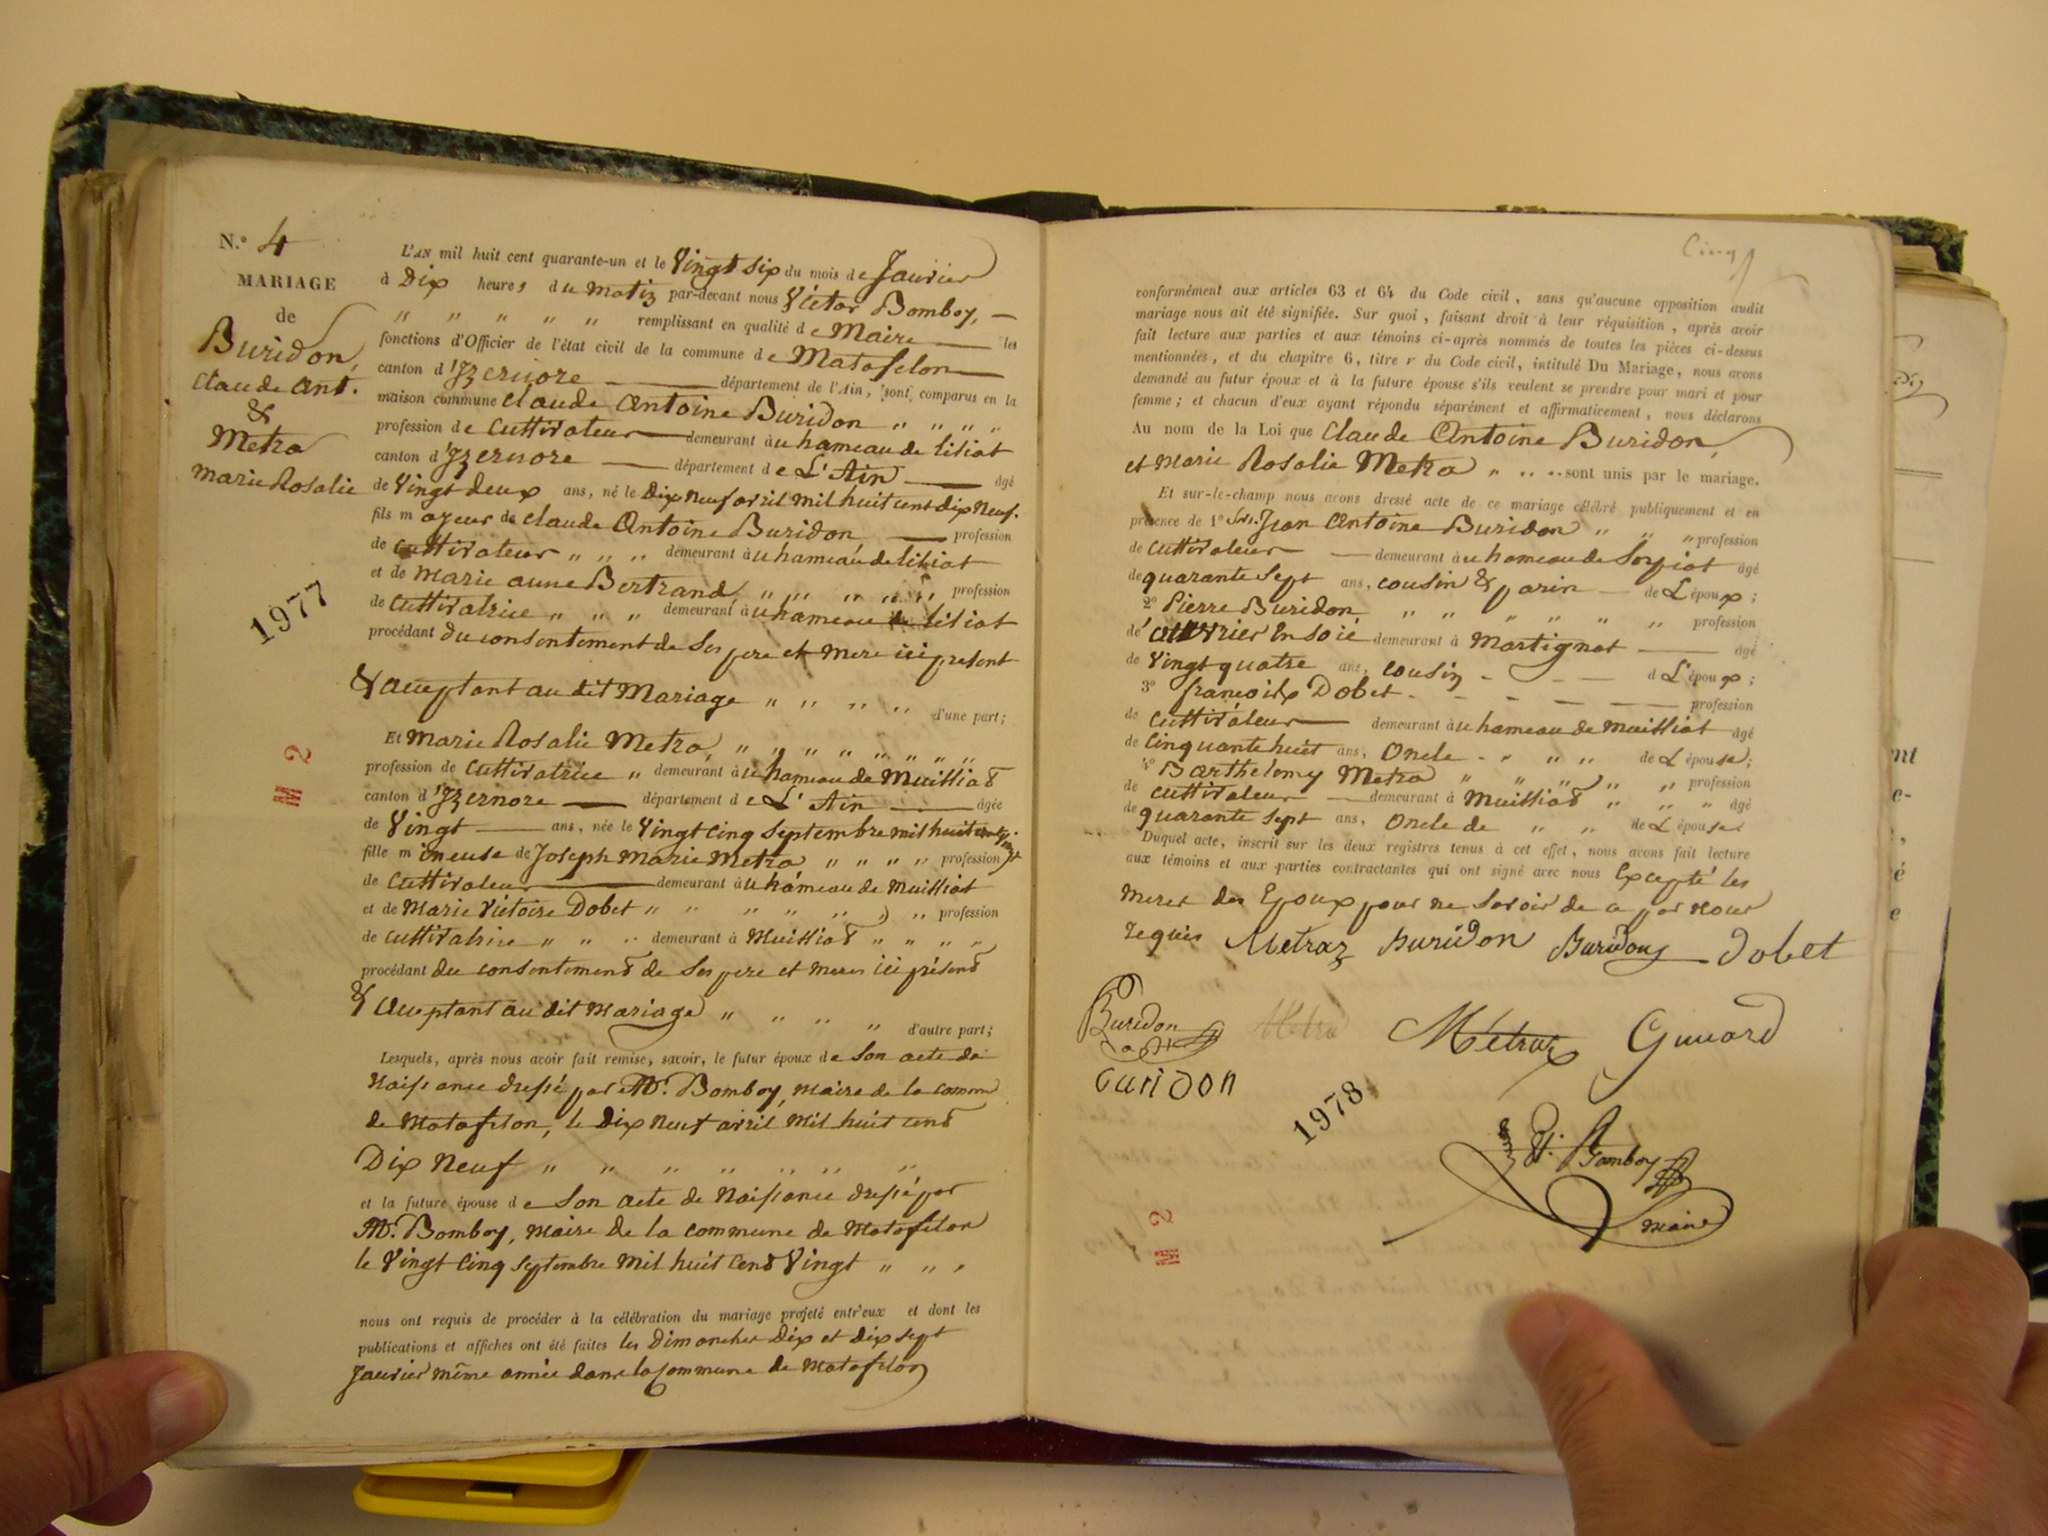 N.º 4
MARIAGE
de
Buridon,
Claude Ant.
&
Metra
Marie Rosalie
1977
M 2
L'AN mil huit cent quarante-un et le Vingt Six du mois de Janvier
à Dix heures du Matin par-devant nous Victor Bomboy, —
" " " " " remplissant en qualité de Maire — les
fonctions d'Officier de l'état civil de la commune de Matafelon
canton d'Izernore — département de l'Ain, sont comparus en la
maison commune Claude Antoine Buridon " " " "
profession de Cultivateur — demeurant àu hameau de liliat
canton d'Izernore — département de L'Ain — âgé
de Vingt deux ans, né le Dix Neuf avril mil huit cent dix Neuf.
fils majeur de Claude Antoine Buridon — profession
de Cultivateur " " " demeurant àu hameau de liliat
et de Marie anne Bertrand, " " " " " " profession
de Cultivatrice " " " demeurant àu hameau de liliat
procédant du consentement de Ses pere et mere ici present
& acceptant au dit Mariage " " " " d'une part;
Et Marie Rosalie Metra, " " " " " " "
profession de Cultivatrice " demeurant àu hameau de Muilliat
canton d'Izernore — département de L'Ain — âgée
de Vingt — ans, née le Vingt Cinq Septembre mil huit cent Vingt
fille mineuse de Joseph Marie Metra " " " " profession
de Cultivateur — demeurant àu hameau de Muilliat
et de Marie Victoire Dobet " " " " " " " profession
de Cultivatrice " " " demeurant à Muilliat " " " "
procédant du consentement de Ses pere et meres ici présent
& acceptant au dit Mariage " " " " d'autre part;
Lesquels, après nous avoir fait remise, savoir, le futur époux de Son acte de
Naissance dressé par Mr. Bomboy, Maire de la comm
de Matafelon, le Dix Neuf avril Mil huit cent
Dix Neuf " " " " " " "
et la future épouse de Son acte de Naissance dressé par
Mr. Bomboy, Maire de la Commune de Matafelon
le Vingt Cinq Septembre Mil huit Cent Vingt " " "
nous ont requis de procéder à la célébration du mariage projeté entr'eux et dont les
publications et affiches ont été faites les Dimanches Dix et dix sept
Janvier même année dans la Commune de Matafelon
Cinq
conformément aux articles 63 et 64 du Code civil, sans qu'aucune opposition audit
mariage nous ait été signifiée. Sur quoi, faisant droit à leur réquisition, après avoir
fait lecture aux parties et aux témoins ci-après nommés de toutes les pièces ci-dessus
mentionnées, et du chapitre 6, titre v du Code civil, intitulé Du Mariage, nous avons
demandé au futur époux et à la future épouse s'ils veulent se prendre pour mari et pour
femme; et chacun d'eux ayant répondu séparément et affirmativement, nous déclarons
Au nom de la Loi que Claude Antoine Buridon,
et Marie Rosalie Metra " " " " sont unis par le mariage.
Et sur-le-champ nous avons dressé acte de ce mariage célébré publiquement et en
présence de 1º Jean Antoine Buridon " " " profession
de Cultivateur — demeurant àu hameau de Sorpiat âgé
de quarante Sept ans, cousin & parin — de L'époux;
2º Pierre Buridon " " " " " " profession
de ouvrier En Soié demeurant à Martignat — âgé
de Vingt quatre ans, cousin - - — d L'époux;
3º françois Dobet - - — — profession
de Cultivateur — demeurant àu hameau de Muilliat âgé
de Cinquante huit ans, Oncle - " " " de L'épouse;
4º Barthelemy Metra " " " " " profession
de Cultivateur — demeurant à Muilliat " " " âgé
de quarante Sept ans, Oncle de " " de L'épouse.
Duquel acte, inscrit sur les deux registres tenus à cet effet, nous avons fait lecture
aux témoins et aux parties contractantes qui ont signé avec nous Excepté les
Meres des Epoux pour ne Savoir de ce par Nous
requis Metraz Buridon Buridon Dobet
Buridon Metra Metraz Gunard
Curidon
1978
Vr. Bomboy
Maire
M 2